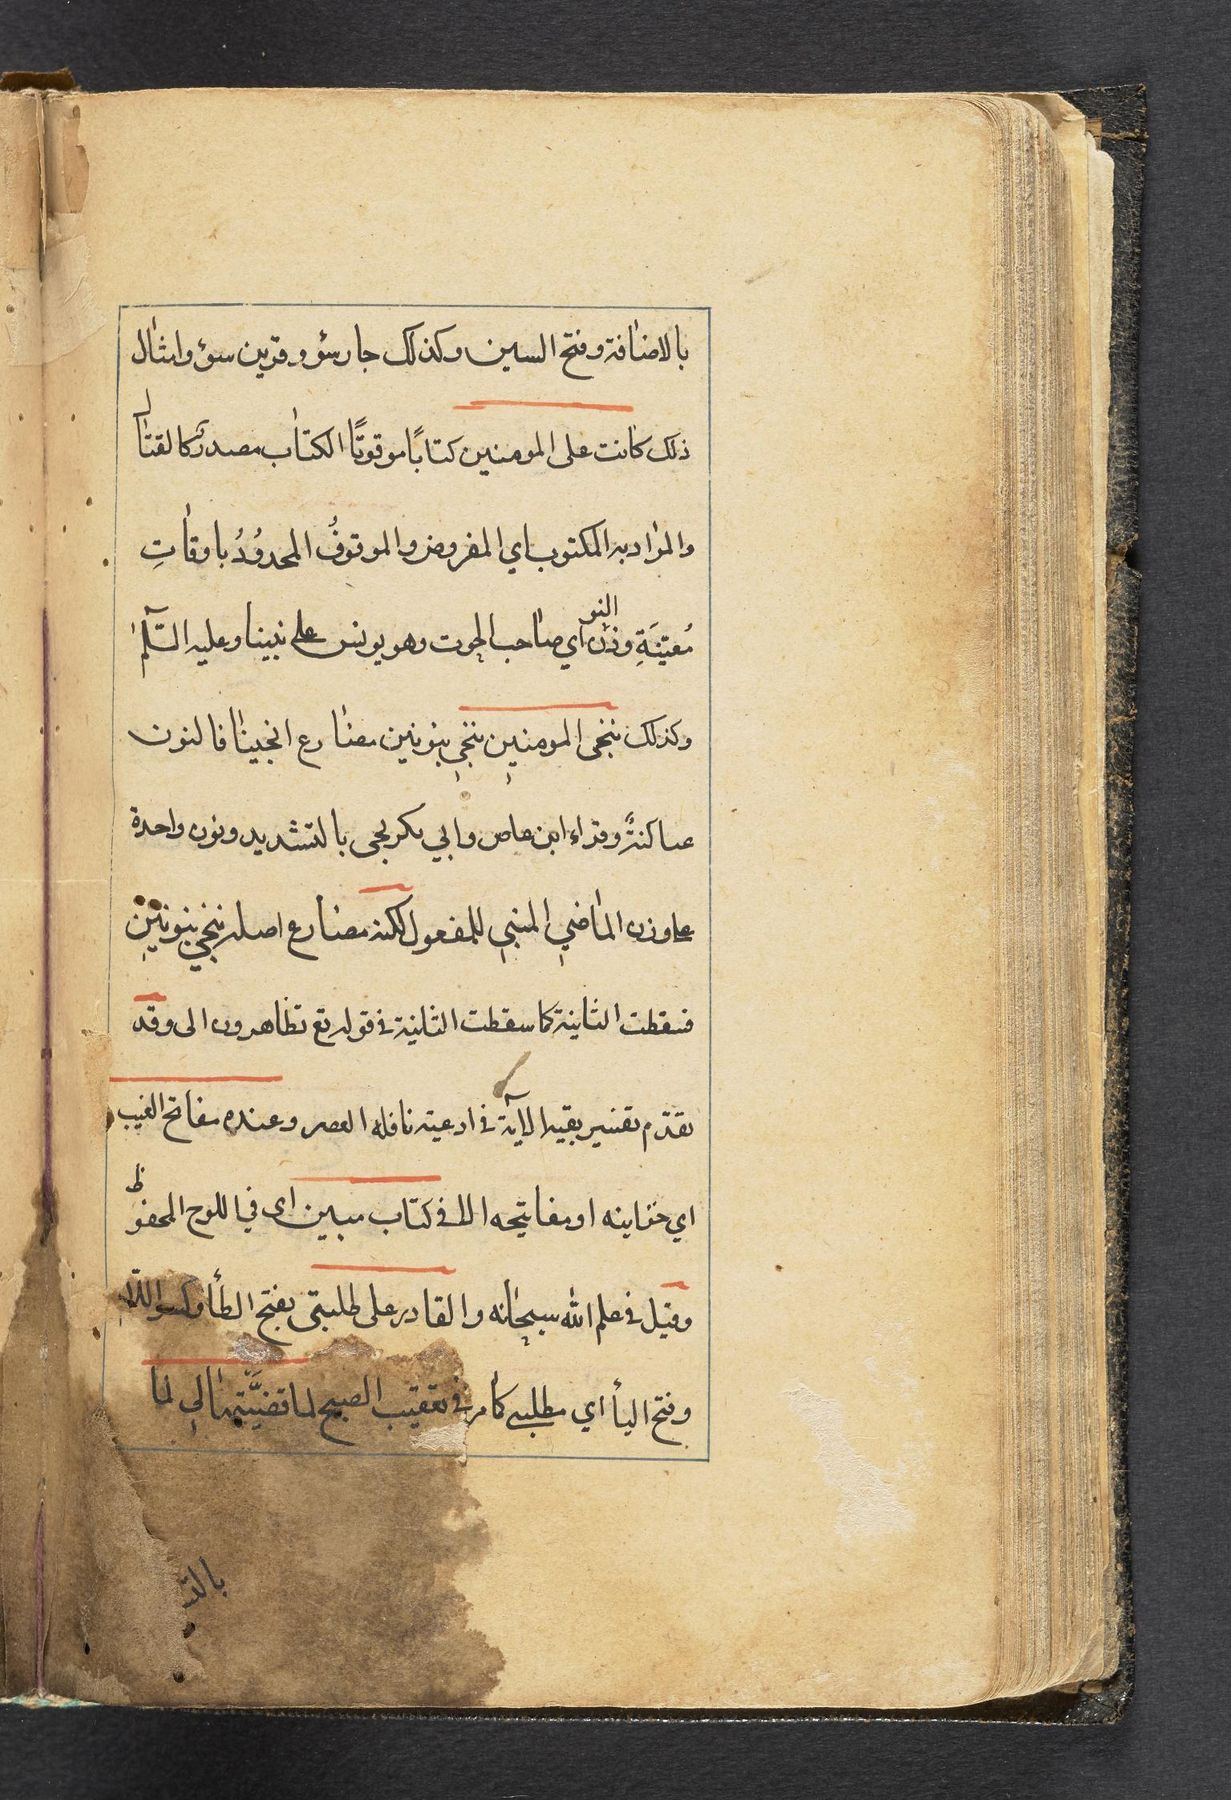 بالاضافة وفتح السين وكذلك جار سؤ وقرين سؤ وامثال
ذلك كانت على المومنين كتابًا موقوتًا الكتاب مصدرٌ كالقتال
والمراد به المكتوب اي المفروض والموقوفُ المحدوُدُ باوقاتِ
مُعيّنَةِ وذا النون اي صاحب الحوت وهو يونس على نبينا وعليه السّلم
وكذلك ننجى المومنين ننجي بنونين مضارع انجينا فالنون
ساكنةٌ وقراء ابن عاص وابي بكر نجى بالتشديد ونون واحدة
على وزن الماضي المبني للمفعول لكنه مضارع اصله ننجي بنونين
فسقطت الثانية كما سقطت الثانية في قوله تع تظاهرون الى وقد
تقدّم تفسير بقية الآية في ادعية نافلة العصر وعنده مفاتح الغيب
اي خزاينه او مفاتيحه الا في كتاب مبين اى في اللوح المحفوظ
وقيل في علم الله سبحانه والقادر على طلبتى بفتح الطأ وكسر اللام
وفتح اليأ اي مطلبى كامر في تعقيب الصبح لما قضيّتها لي لما
بالتـ